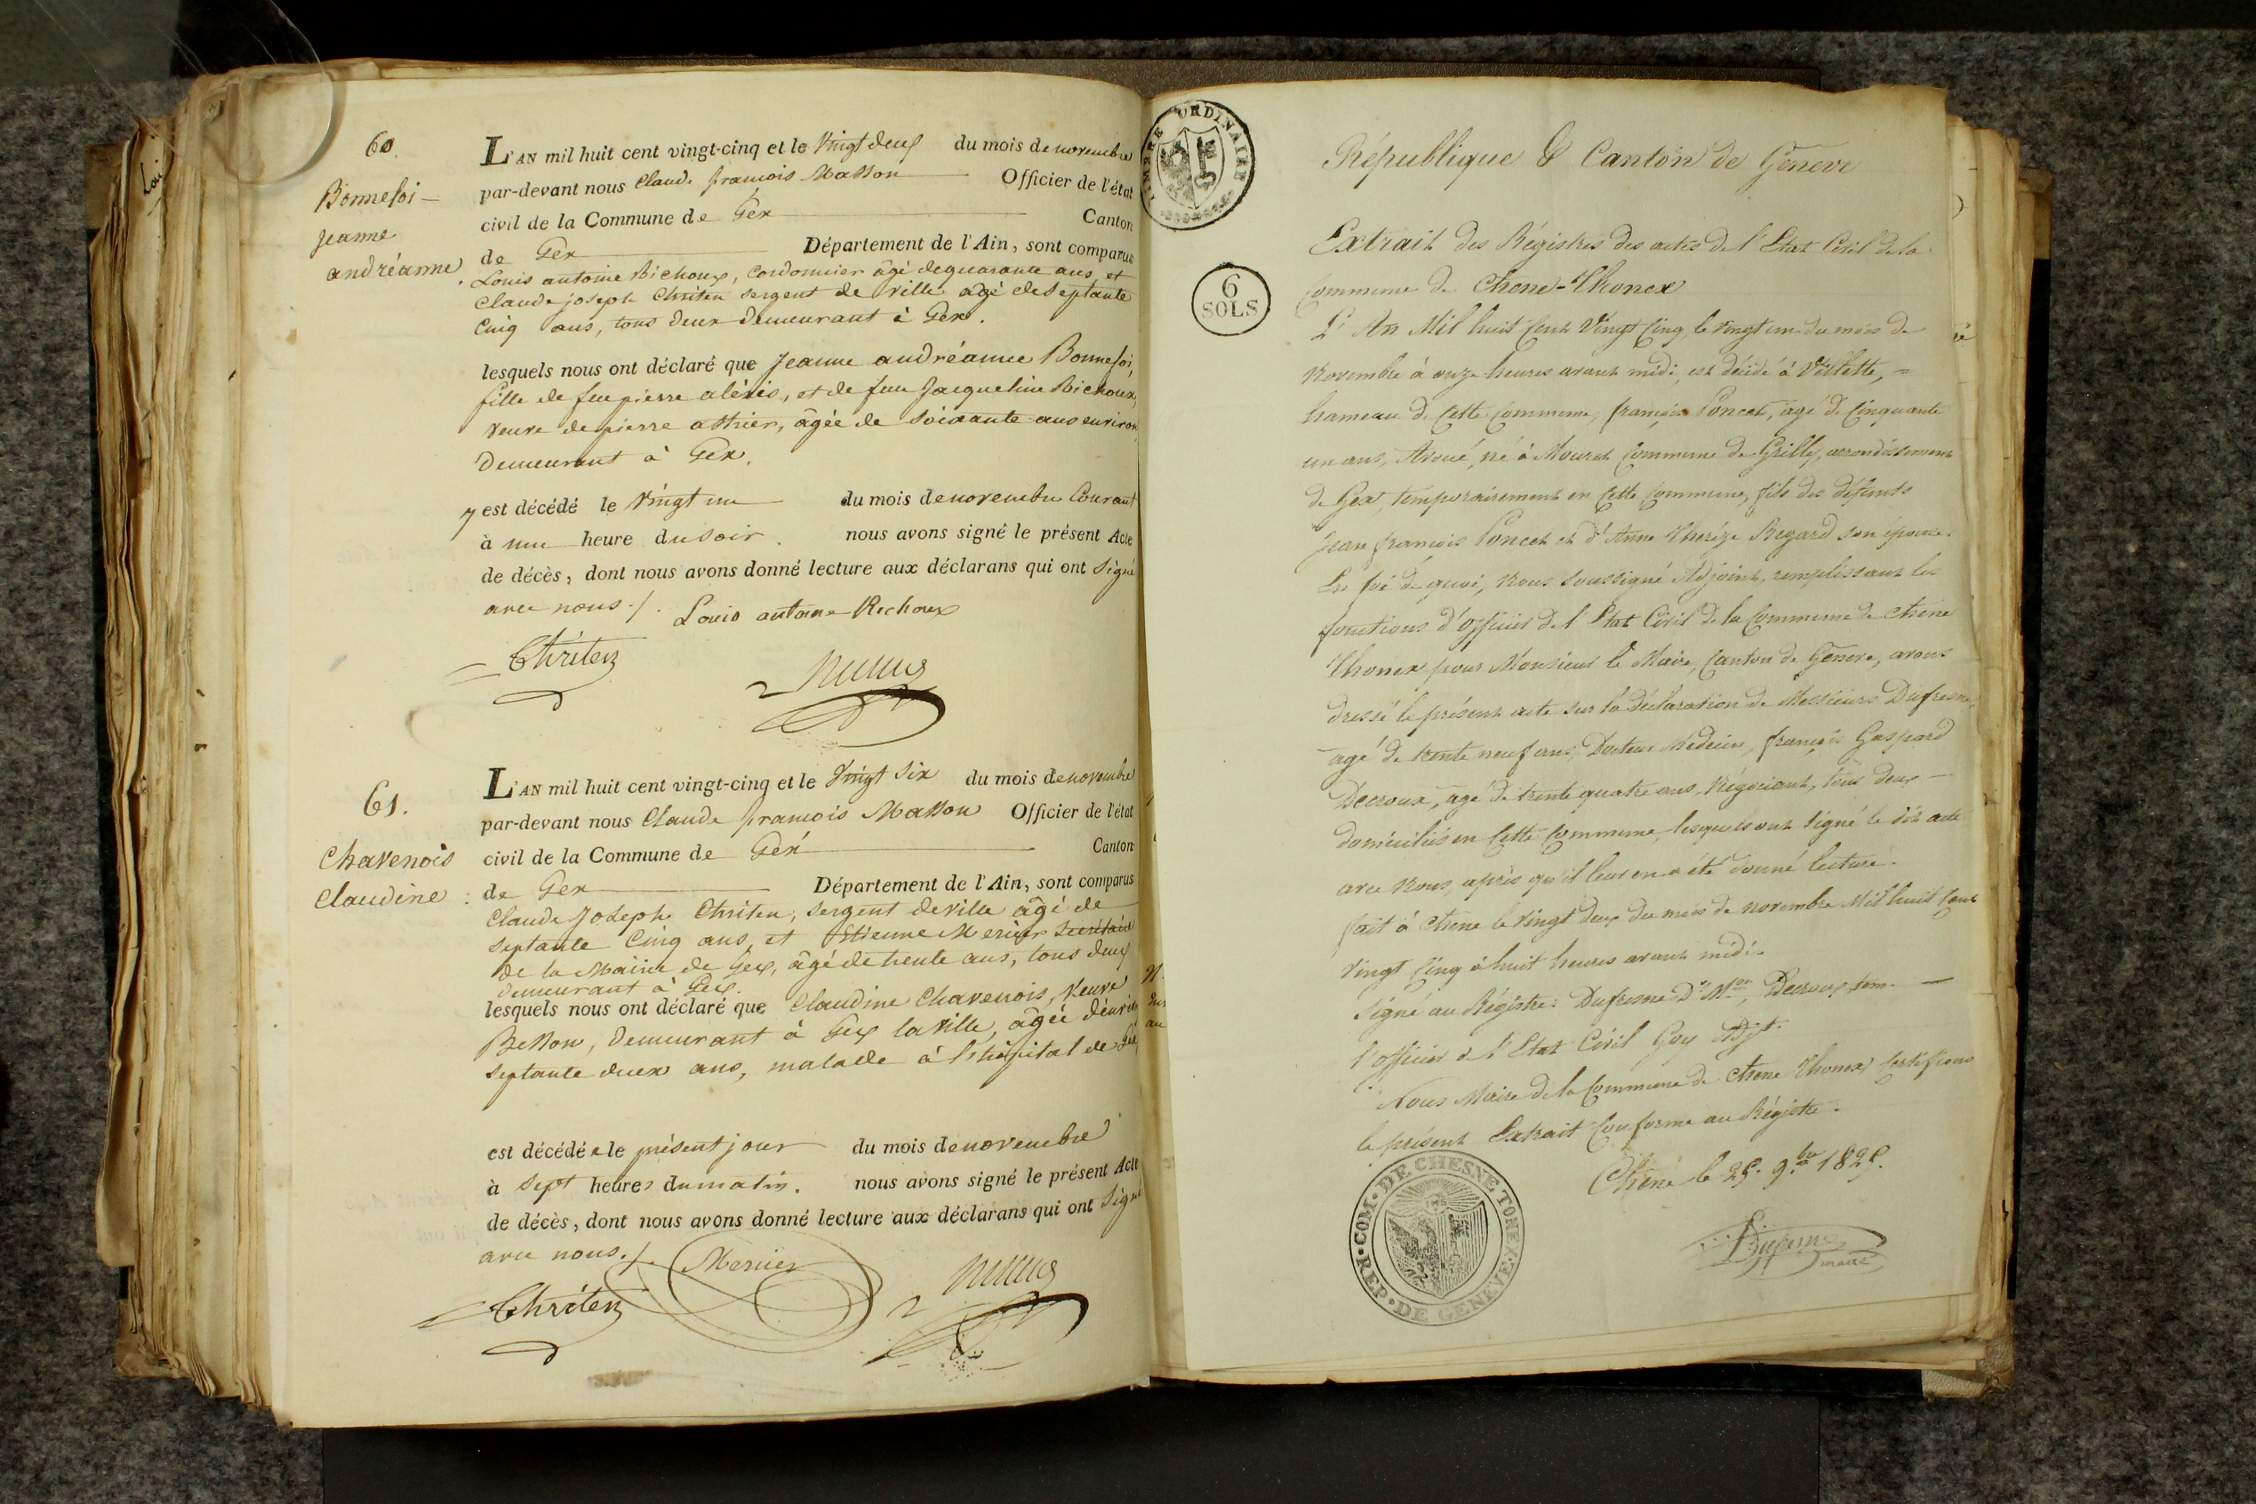 60.
Bonnefoi
jeanne
andréanne.
L'AN mil huit cent vingt-cinq et le Vingt deux du mois de novembre
par-devant nous Claude françois Masson Officier de l'état
civil de la Commune de Gex Canton
de Gex Département de l'Ain, sont comparus
Louis antoine Richoux, Cordonnier âgé de quarante ans, et
Claude joseph Chriten sergent de ville agé de Septante
Cinq ans, tous deux demeurant à Gex.
lesquels nous ont déclaré que jeanne andréanne Bonnefoi,
fille de feu pierre aléxis, et de feue Jacqueline Richoux,
veuve de pierre athier, âgée de soixante ans environ
demeurant à Gex.
y est décédé le Vingt un du mois de novembre Courant
à une heure du soir. nous avons signé le présent Acte
de décès, dont nous avons donné lecture aux déclarans qui ont signé
avec nous./. Louis antoine Richoux
Chriten
61.
Chavenois
Claudine
L'AN mil huit cent vingt-cinq et le Vingt six du mois de novembre
par-devant nous Claude françois Masson Officier de l'état
civil de la Commune de Gex Canton
de Gex Département de l'Ain, sont comparus
Claude Joseph Chriten, sergent de ville âgé de
septante Cinq ans, et Etienne Mercier secrétaire
de la Mairie de Gex, âgé de trente ans, tous deux
demeurant à Gex.
lesquels nous ont déclaré que Claudine Chavenois, veuve
Besson, demeurant à Gex la ville, âgée d'environ
septante deux ans, malade à l'hôpital de Gex,
est décédée le présent jour du mois de novembre
à sept heures du matin. nous avons signé le présent Acte
de décès, dont nous avons donné lecture aux déclarans qui ont signé
avec nous./. Mercier
Chriten
TIMBRE ORDINAIRE
6
SOLS
République & Canton de Genève
Extrait des Régistres des actes de l'Etat Civil de la
Commune de Chene-Thonex
L'An Mil huit Cent Vingt Cinq, le vingt un du mois de
Novembre à onze heures avant midi, est décédé à Villette,
hameau de Cette Commune, françois Poncet, agé de Cinquante
un ans, Avoué, né à Mourex Commune de Grilly, arrondissement
de Gex, temporairement en Cette Commune, fils des défunts
Jean françois Poncet et d'Anne Thérèze Regard son épouse.
En foi de quoi, Nous soussigné Adjoint, remplissant les
fonctions d'Officier de l'Etat Civil de la Commune de Chene
Thonex pour Monsieur le Maire, Canton de Genève, avons
dressé le présent acte sur la déclaration de Messieurs Dufresne,
agé de trente neuf ans, Docteur Médecin, françois Gaspard
Decroux, agé de trente quatre ans, Négociant, tous deux
domiciliés en Cette Commune, lesquels ont signé le dit acte
avec Nous, après qu'il leur en a été donné lecture.
fait à Chene le vingt deux du mois de novembre Mil huit Cent
vingt Cinq à huit heures avant midi.
Signé au Régistre: Dufresne Dr. Mein, Decroux tem.
l'officier de l'Etat Civil Goy Adjt.
Nous Maire de la Commune de Chene Thonex, certifions
le présent Extrait Conforme au Régistre.
Chene le 25. 9.bre 1825.
REP. DE GENEVE. COM. DE CHESNE TONEX
maire